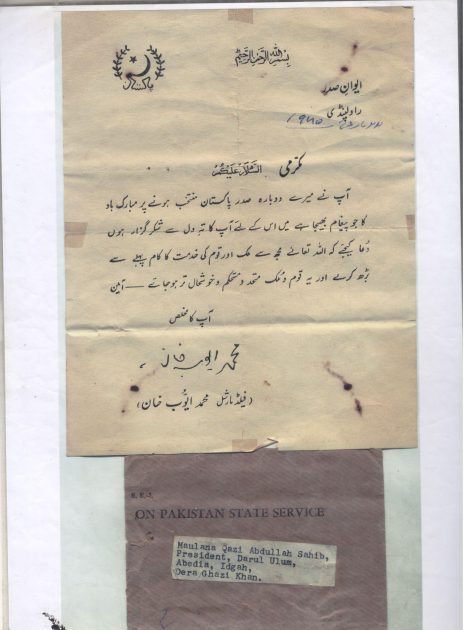 بسم اللہ الرحمن الرحیم
پاکستان
ایوانِ صدر
راولپنڈی
۱۹۶۵
مکرمی السلام علیکم
آپ نے میرے دوبارہ صدر پاکستان منتخب ہونے پر مبارک باد
کا جو پیغام بھیجا ہے میں اس کے لئے آپ کا تہِ دل سے شکر گزار ہوں
دُعا کیجئے کہ اللہ تعالےٰ مجھ سے ملک اور قوم کی خدمت کا کام پہلے سے
بڑھ کر لے اور یہ قوم و ملک متحد و مستحکم و خوشحال تر ہو جائے — آمین
آپ کا مخلص
محمد ایوب خان
(فیلڈ مارشل محمد ایوب خان)
S. E.-1.
ON PAKISTAN STATE SERVICE
Maulana Qazi Abdullah Sahib,
President, Darul Ulum,
Abedia, Idgah,
Dera Ghazi Khan.